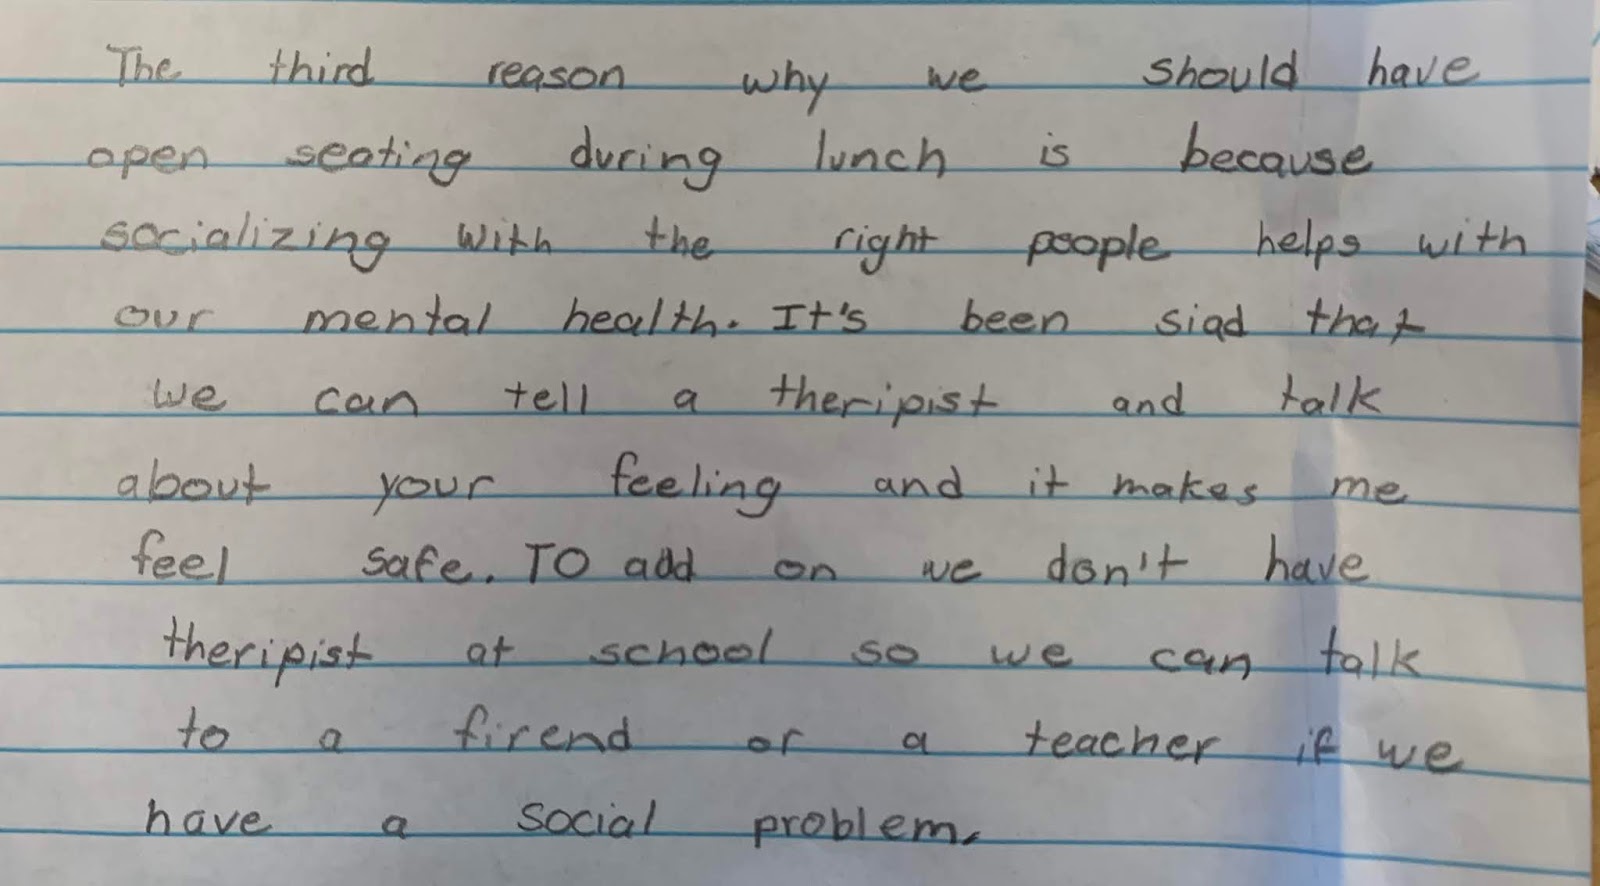 The third reason why we should have
open seating during lunch is because
socializing with the right people helps with
our mental health. It's been siad that
we can tell a theripist and talk
about your feeling and it makes me
feel safe. TO add on we don't have
theripist at school so we can talk
to a firend or a teacher if we
have a social problem.